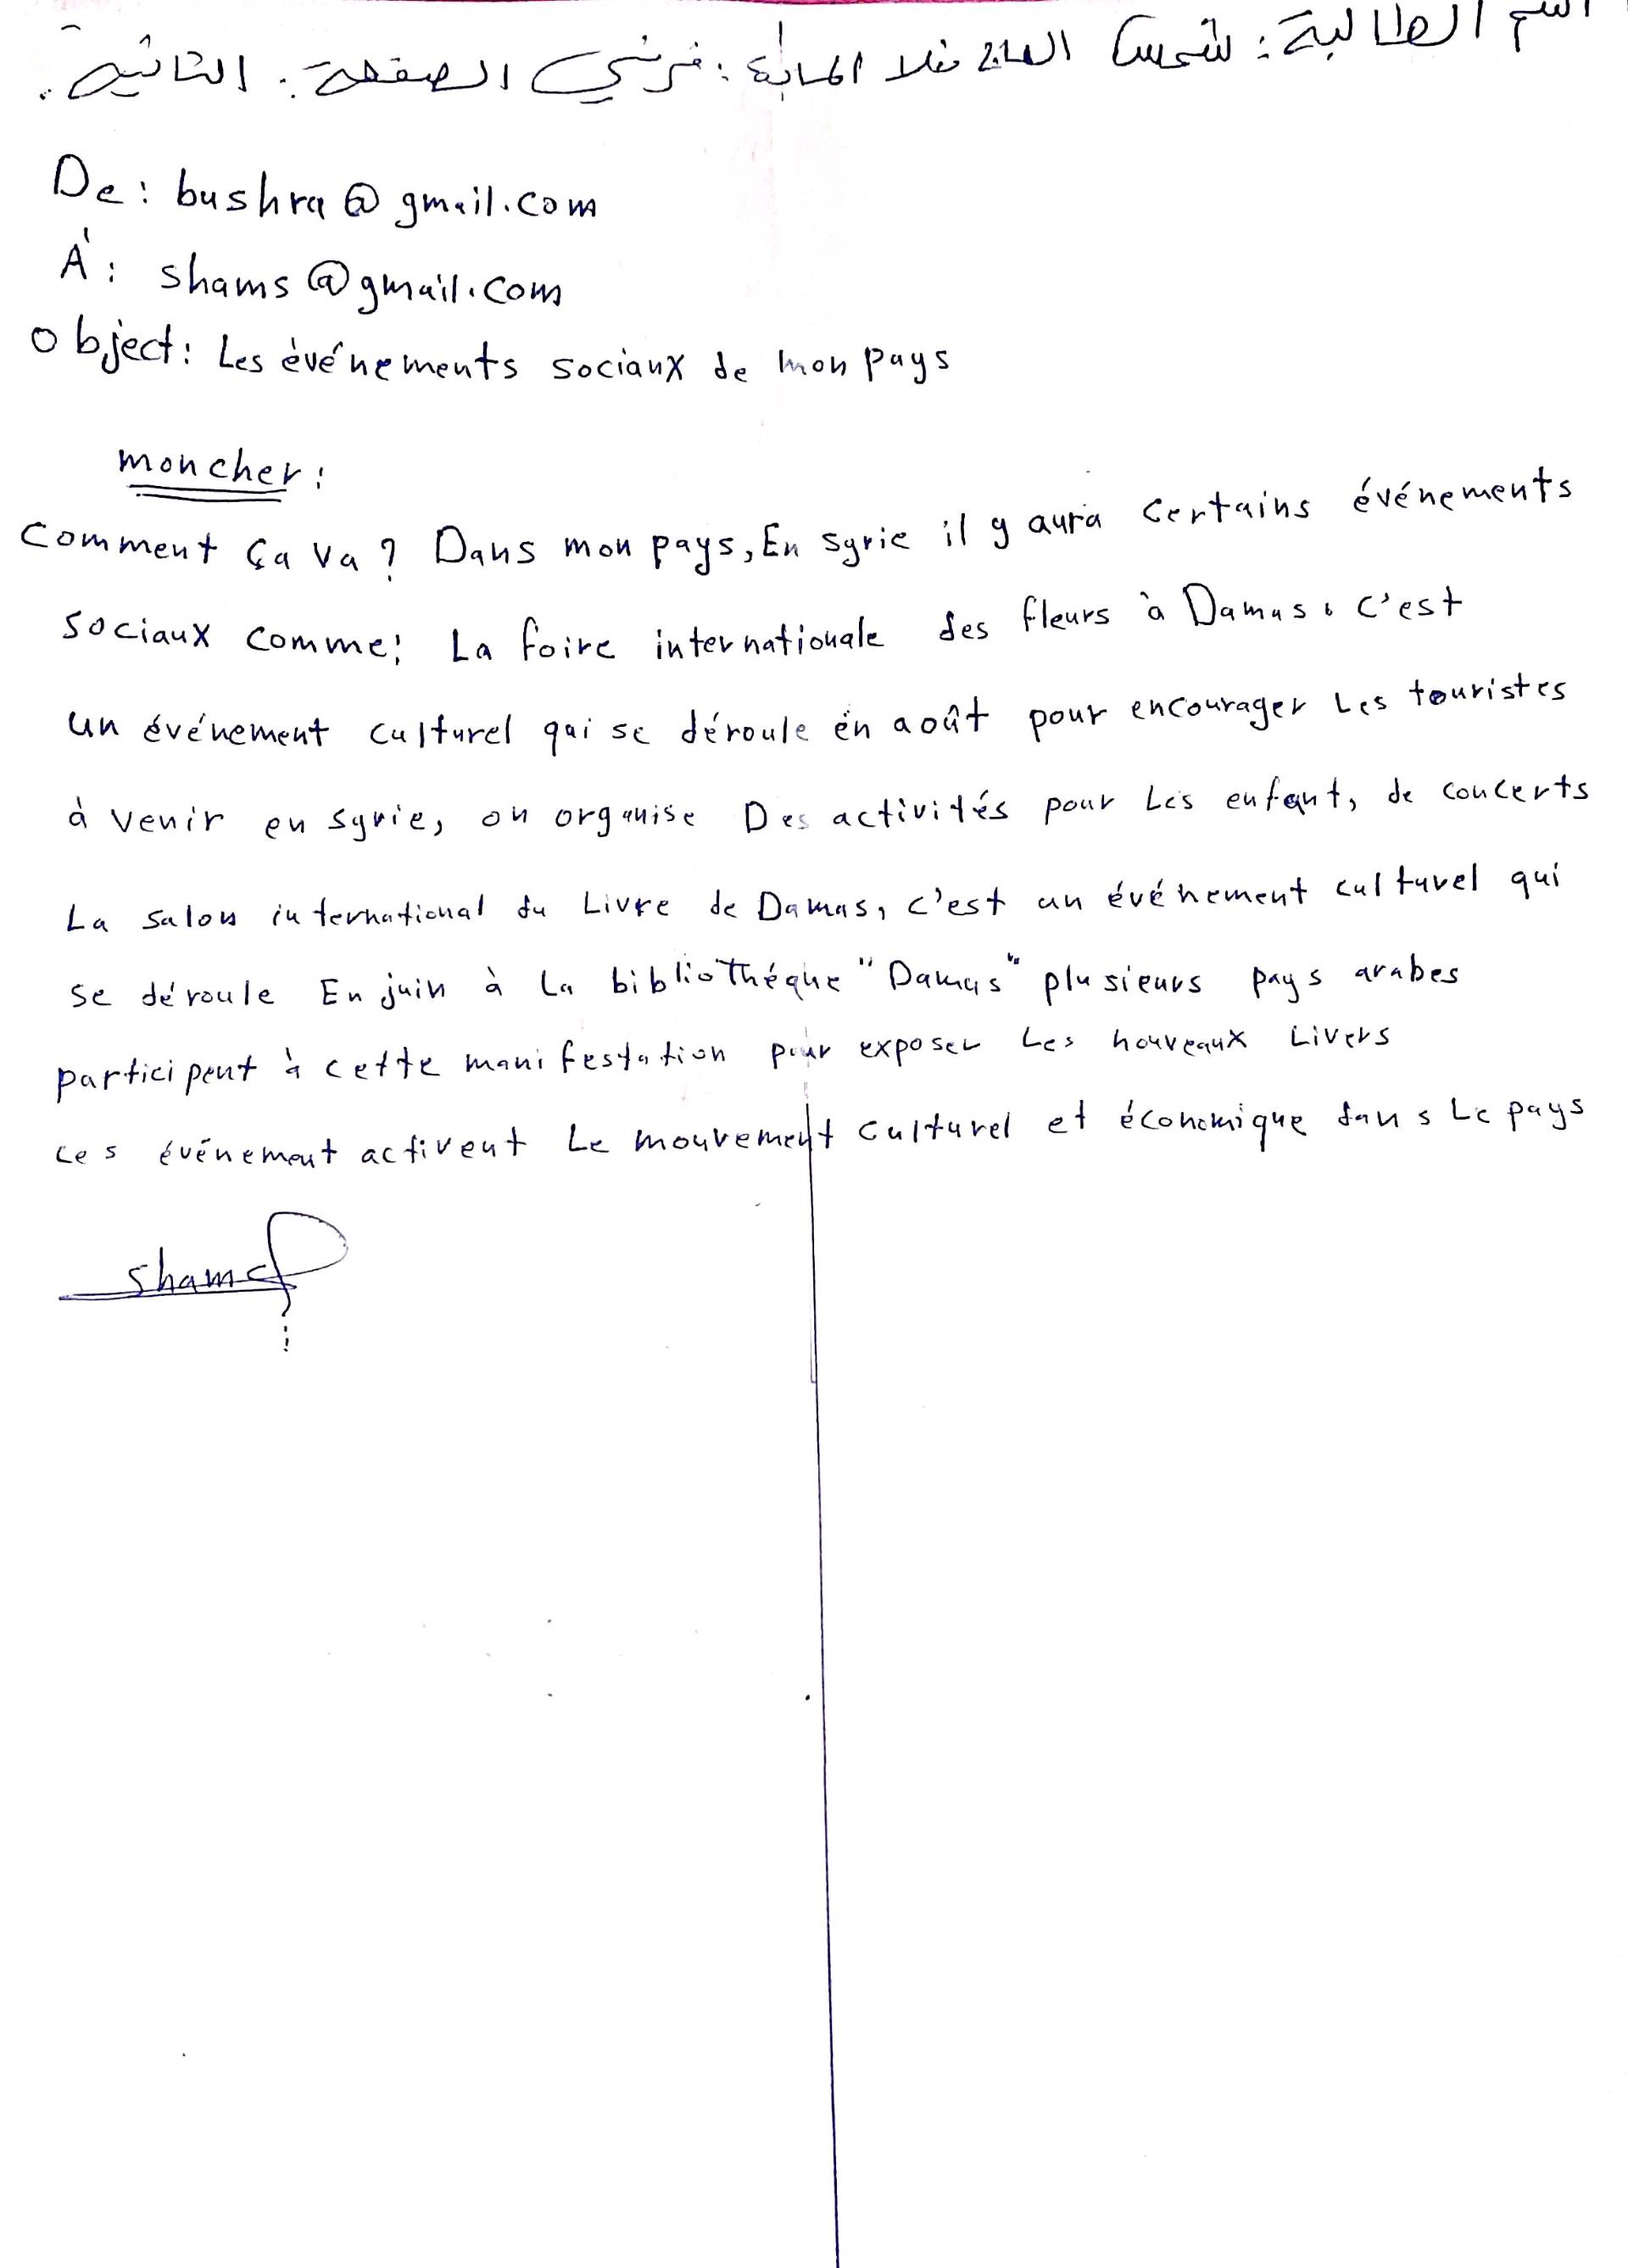 اسم الطالبة: شمس الحاج منلا المادة: فرنسي الصفحة: الثانية.
De: bushra@gmail.com
À: shams@gmail.com
Object: Les événements sociaux de mon pays
mon cher:
Comment ça va? Dans mon pays, En syrie il y aura certains événements
sociaux comme: La foire internationale des fleurs à Damas. C'est
un événement culturel qui se déroule en août pour encourager Les touristes
à venir en syrie, on organise Des activités pour Les enfant, de concerts
La salon international du Livre de Damas, c'est un événement culturel qui
se déroule En juin à La bibliothéque "Damas" plusieurs pays arabes
participent à cette manifestation pour exposer Les nouveaux Livers
ces événement activent Le mouvement culturel et économique dans Le pays
shams